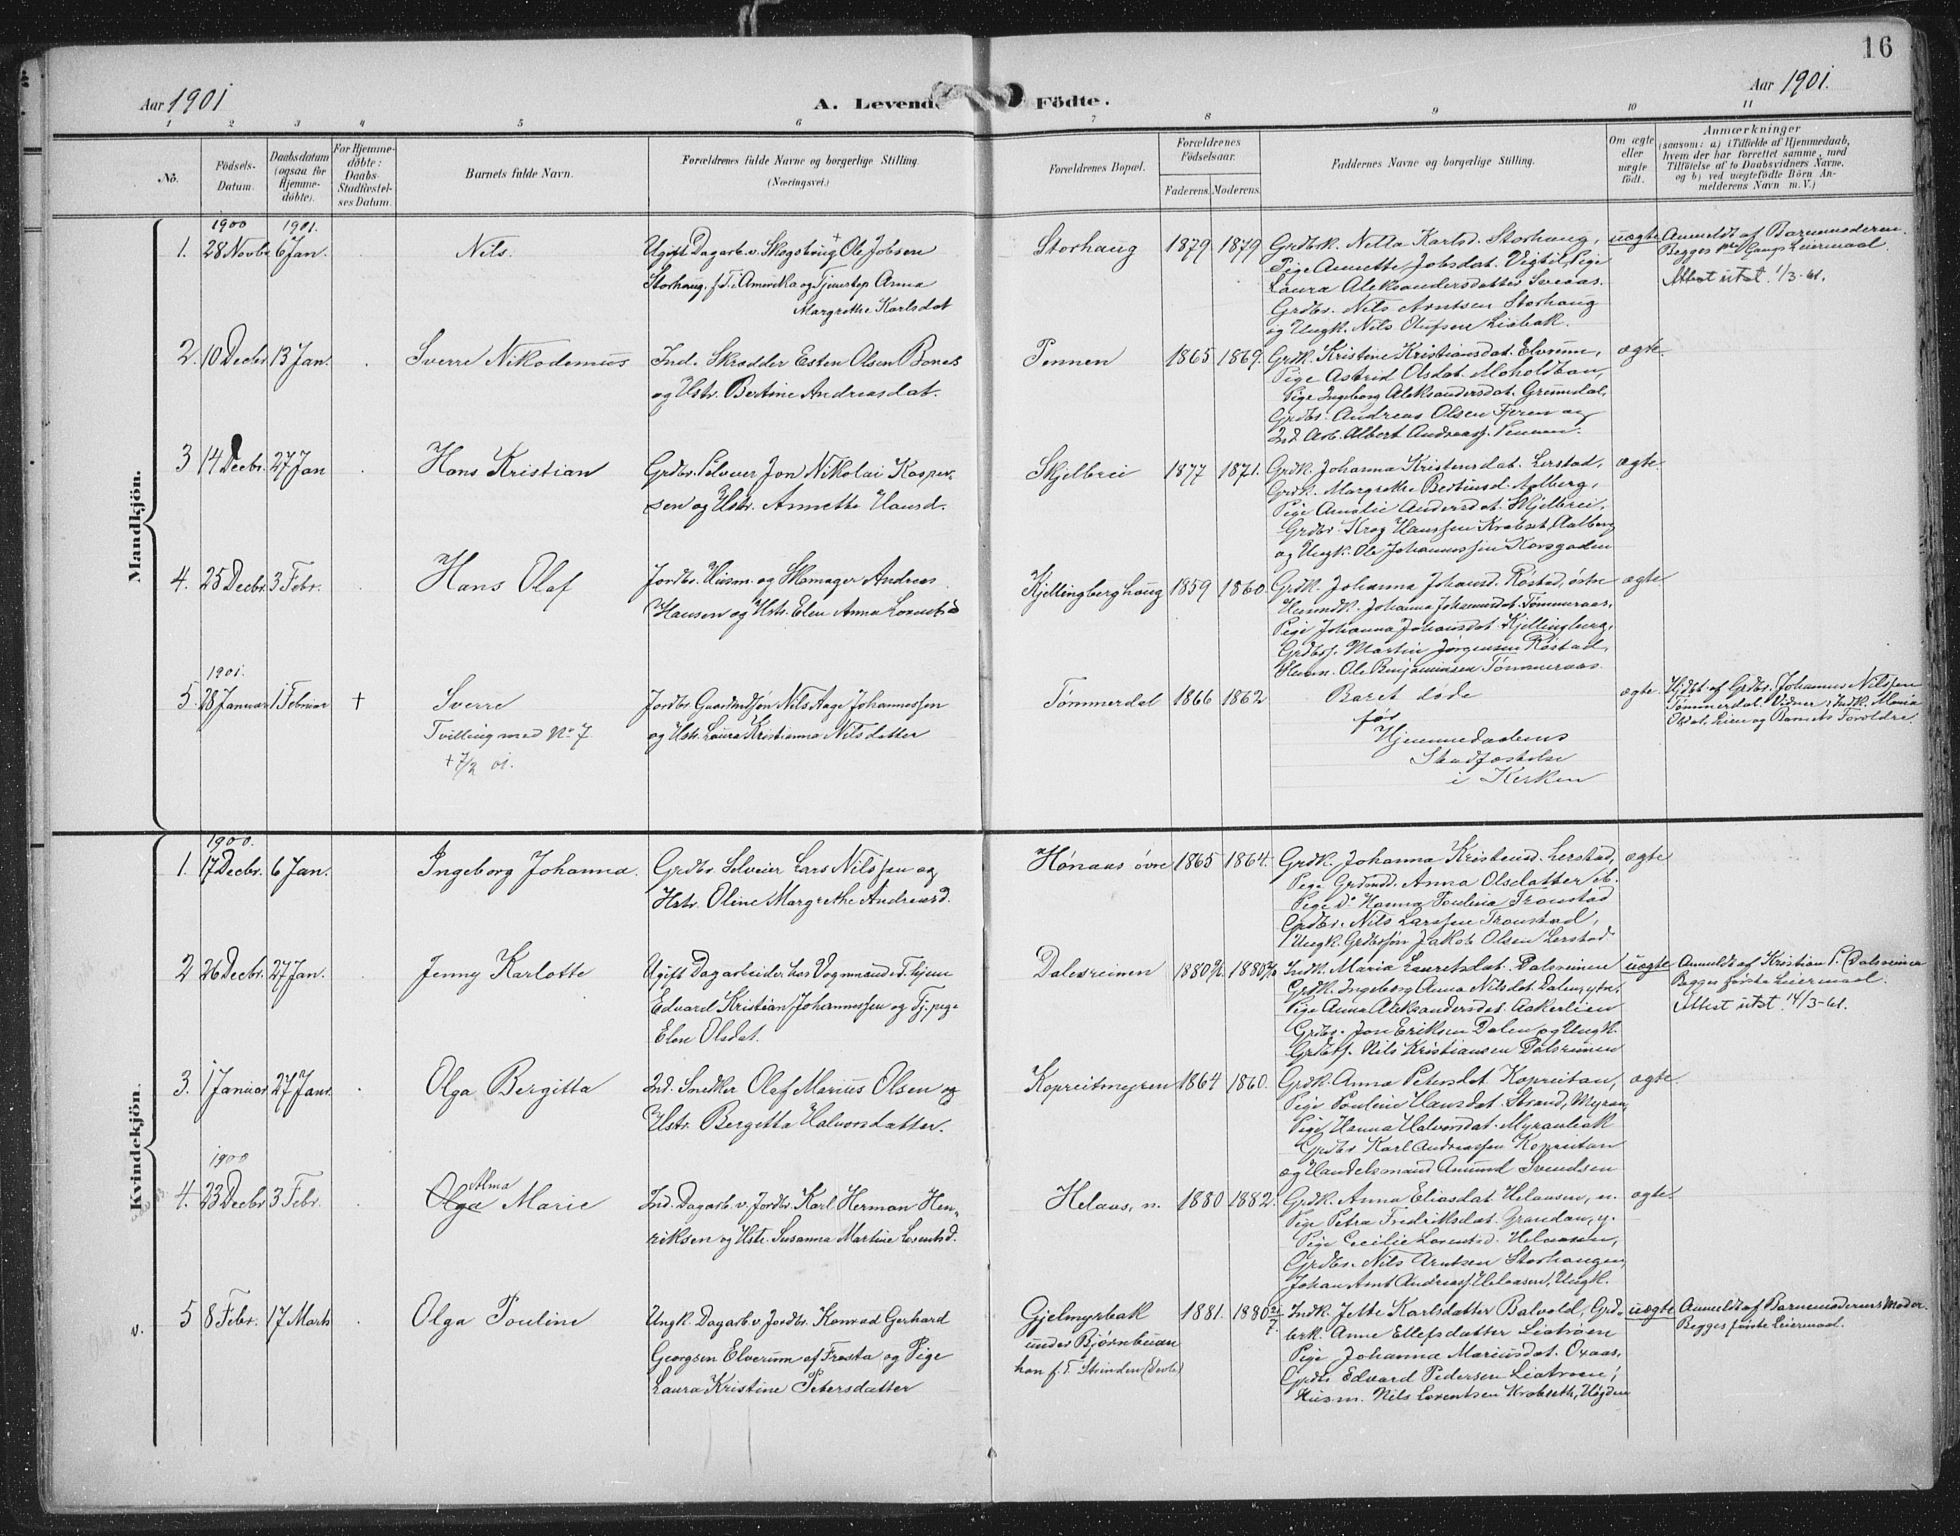 16
Aar 1901
A. Levende Födte.
Aar 1901.
1 2 3 4 5 6 7 8 9 10 11
No.
Födsels-Datum.
Daabsdatum (ogsaa for Hjemme-döbte).
For Hjemme-döbte: Daabs-Stadfæstel-ses Datum.
Barnets fulde Navn.
Forældrenes fulde Navne og borgerlige Stilling.
(Næringsvei.)
Forældrenes Bopæl.
Forældrenes Födselsaar.
Faderens. Moderens.
Faddernes Navne og borgerlige Stilling.
Om ægte eller uægte födt.
Anmærkninger
(saasom: a) i Tilfælde af Hjemmedaab, hvem der har forrettet samme, med Tilföielse af to Daabsvidners Navne, og b) ved uægtefödte Börn An-melderens Navn m. V.)
Mandkjön.
1900 1901.
1. 28 Novbr 6 Jan. Nils.
Ugift Dagarb. v. Skogsbrug Ole Jobsen
Storhaug, f. T. i Amerika og Tjenestep Anna
Margrethe Karlsdat
Storhaug 1879 1879
Grdbrk. Netta Karlsd. Storhaug,
Pige Annette Jobsdat. Vigtil, Pige
Laura Aleksandersdatter Sveaas.
Grdbr. Nils Arntsen Storhaug
og Ungk. Nils Olufsen Liabak.
uægte
Anmeldt af Barnemoderen.
Begges 1ste Gangs Leiermaal
Attest utst. 1/3-61.
2. 10 Decbr 13 Jan. Sverre Nikodemus
Ind. Skrædder Esten Olsen Bones
og Hstr. Bertine Andreasdat.
Pennen 1865 1869.
Grdk. Kristine Kristiansdat. Elverum,
Pige Astrid Olsdat. Moholdtrøa,
Pige Ingeborg Aleksandersdat. Grønndal,
Grdbr. Andreas Olsen Fjeren og
Ind. Arb. Albert Andreass. Pennen.
ægte
3 14 Decbr. 27 Jan Hans Kristian
Grdbr. Selveier Jon Nikolai Kasper-
sen og Hstr. Annette Hansd.
Skjelbrei 1877 1871.
Grdk. Johanna Kristensdat. Lerstad,
Grdk. Margrethe Berdtinsd. Aalberg,
Pige Amalie Andersdat. Skjelbrei,
Grdbr. Krog Hanssen Krabset, Aalberg
og Ungk. Ole Johannessen Korsgaden
ægte
4. 25 Decbr. 3 Febr. Hans Olaf
Jordbr. Husm. og Skomager Andreas
Hansen og Hstr. Elen Anna Lorntsd
Kjellingberghaug 1859 1860.
Grdk. Johanna Johansd. Røstad, østre
Husmdk. Johanna Johannesdat. Tømmeraas,
Pige Johanna Johansdat. Kjellingberg,
Grdbrs. Martin Jørgensen Røstad,
Husm. Ole Benjaminsen Tømmeraas.
ægte
1901.
5. 28 Januar 1 Februar + Sverre
Tvilling med No 7
+ 7/2 01.
Jordbr. Gaardmdsøn Nils Aage Johannessen
og Hstr. Laura Kristianna Nilsdatter
Tømmerdal 1866 1862
Barnet døde
før
Hjemmedaabens
Stadfæstelse
i Kirken
ægte.
Hjdbt. af Grdbr. Johannes Nilssen
Tømmerdal. Vidner: Indk. Maria
Olsdat. Lien og Barnets Forældre.
Kvindekjön.
1900.
1. 17 Decbr. 6 Jan. Ingeborg Johanna.
Grdbr. Selveier Lars Nilssen og
Hstr. Oline Margrethe Andreasd.
Hønaas øvre 1865 1864.
Grdk. Johanna Kristensd. Lerstad,
Pige Grdmdd. Anna Olsdatter ib.
Pige do Hanna Paulina Tronstad
Grdbr. Nils Larssen Tronstad,
Ungk. Grdbrssøn Jakob Olsen Lerstad
ægte
2 26 Decbr. 27 Jan. Jenny Karlotte
Ugift Dagarbeider hos Vognmand i T.hjem
Edvard Kristian Johannessen og Tj.pige
Elen Olsdat.
Dalesreinen 1880 1880
Indk. Maria Lauritsdat. Dalsreinen
Grdk. Ingeborg Anna Nilsdat Dalen, ytr.
Pige Anna Aleksandersdat. Aakerlien
Grdbr. Jon Eriksen Dalen og Ungk.
Grdbrs. Nils Kristiansen Dalsreinen
uægte
Anmeldt af Kristian P. Dalsreinen
Begges første Leiermaal.
Attest utst. 14/3-61.
3. 1 Januar 27 Janr. Olga Bergitta
Ind. Snedker Olaf Marius Olsen og
Hstr. Bergitta Halvorsdatter.
Kopreitmyren 1864 1860.
Grdk. Anna Petersdat Kopreitan,
Pige Pauline Hansdat. Strand, Myran,
Pige Hanna Halvorsdat. Myranleak
Grdbr Karl Andreassen Kopreitan
og Handelsmand Amund Svendsen
ægte
1900
4. 23 Decbr. 3 Febr. Olga Alma Marie
Ind. Dagarb. v. Jordbr. Karl Herman Hen-
riksen og Hstr. Susanna Martine Lorntsd.
Helaas, n. 1880 1882.
Grdk. Anna Eliasdat. Helaasen, n.
Pige Petra Fredriksdat. Grandan, y.
Pige Cecilie Lorentsd. Helaasen,
Grdbr. Nils Arntsen Storhaugen,
Johan Arnt Andreass. Helaasen, Ungk.
ægte
v. 5 8 Febr. 17 Marts Olga Pouline
Ungk. Dagarb. v. Jordbr. Konrad Gerhard
Georgsen Elverum af Frosta og Pige
Laura Kristine Petersdatter
Gjelmyrbak
under Bjørnhaan
han f. T. Strinden
1881. 1880 21/7.
Indk. Jette Karlsdatter Balvold, Grd-
brk. Anne Ellefsdatter Liatrøen
Pige Johanna Mariusdat. Oxaas,
Grdbr Edvard Pedersen Liatrøen,
Husm. Nils Lorentsen Krabseth, Høgden
uægte
Anmeldt af Barnemoderens Moder.
Begges første Leiermaal.